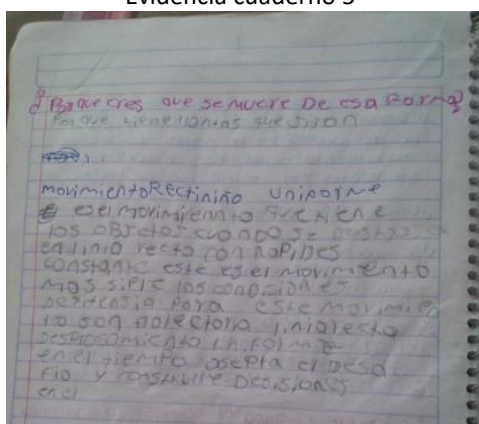 Evidencia cuaderno 3
¿ Por que cres que se mueve De esa Forma?
Por que tiene llantas que jiran
movimiento Rectiniño uniforme
es el movimiento que tiene
los objetos cuando se
en linio recto con RaPides
constante este es el movimiento
mas siple los condisiones
para este movimie
to son liniarecta
en el tiempo asepta el Desa
rio y construlle Decisiones
en el